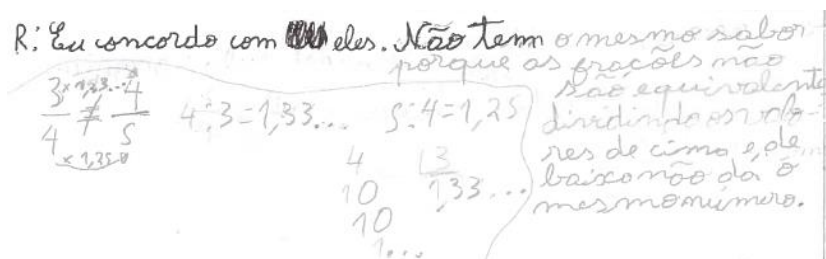 R: Eu concordo com eles. Não tem o mesmo sabor
porque as frações não
são equivalente
dividindo os valo-
res de cima e de
baixo não dá o
mesmo número.
× 1,33...
3/4 ≠ 4/5
× 1,25
4:3=1,33... 5:4=1,25
4 3
10 1,33...
10
1...